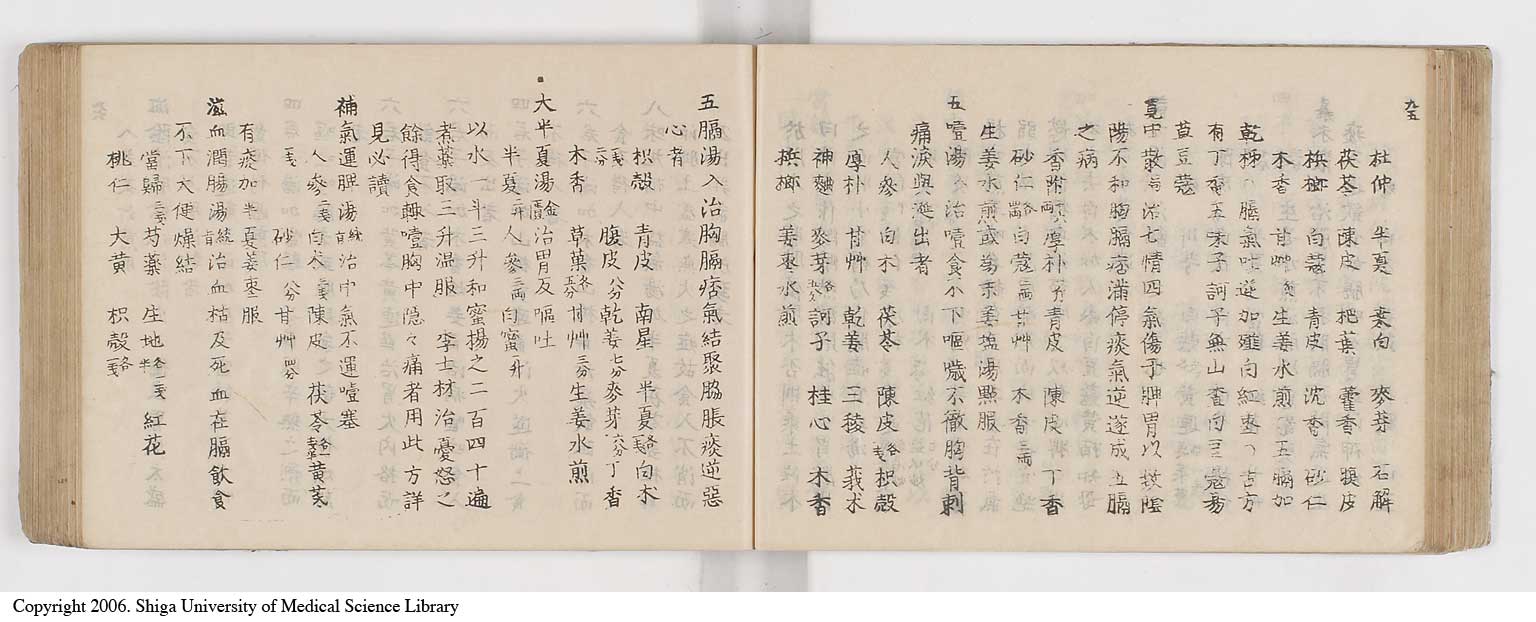 九五
杜仲 半夏 葉白 麥莟 石解
茯苓 陳皮 杷葉 藿香 猴皮
梹榔 白蔻 青皮 沈香 砂仁
木香 甘艸 煎 生姜水煎 五膈加
乾柹 膈氣吐逆加薤白紅棗 古方
有丁香五味子訶子無山査白豆蔻
草豆蔻
寛中散 治七情四氣傷于脾胃以致陰
陽不和胸膈痞滿停痰氣逆遂成五膈
之病
香附 厚朴 青皮 陳皮 丁香
砂仁 白蔻 甘艸 木香
生姜水煎或為末姜塩湯點服
五噎湯 治噎食不下嘔噦不徹胸背刺
痛淚與涎出者
人參 白木 茯苓 陳皮 枳殼
厚朴 甘艸 乾姜 三稜 莪朮
神麯 麥芽 訶子 桂心 木香
梹榔 姜棗水煎
五膈湯 入 治胸膈痞氣結聚脇脹痰逆惡
心者
枳殼 青皮 南星 半夏 白木
腹皮八分 乾姜七分 麥芽六分 丁香
木香 草菓 甘艸三分 生姜水煎
大半夏湯 金匱 治胃反嘔吐
半夏二升 人參三両 白蜜一升
以水一斗三升和蜜揚之二百四十遍
煮藥取三升温服 李士材治憂怒之
餘得食輙噎胸中隐々痛者用此方詳
見必讀
補氣運脾湯 統旨 治中氣不運噎塞
人參二戔 白朮 陳皮 茯苓 黄茋
一戔 砂仁八分 甘艸四分
有痰加半夏姜棗服
滋血潤腸湯 統旨 治血枯及死血在膈飲食
不下大便燥結
當歸三戔 芍藥 生地 紅花
桃仁 大黄 枳殼各一戔
Copyright 2006. Shiga University of Medical Science Library